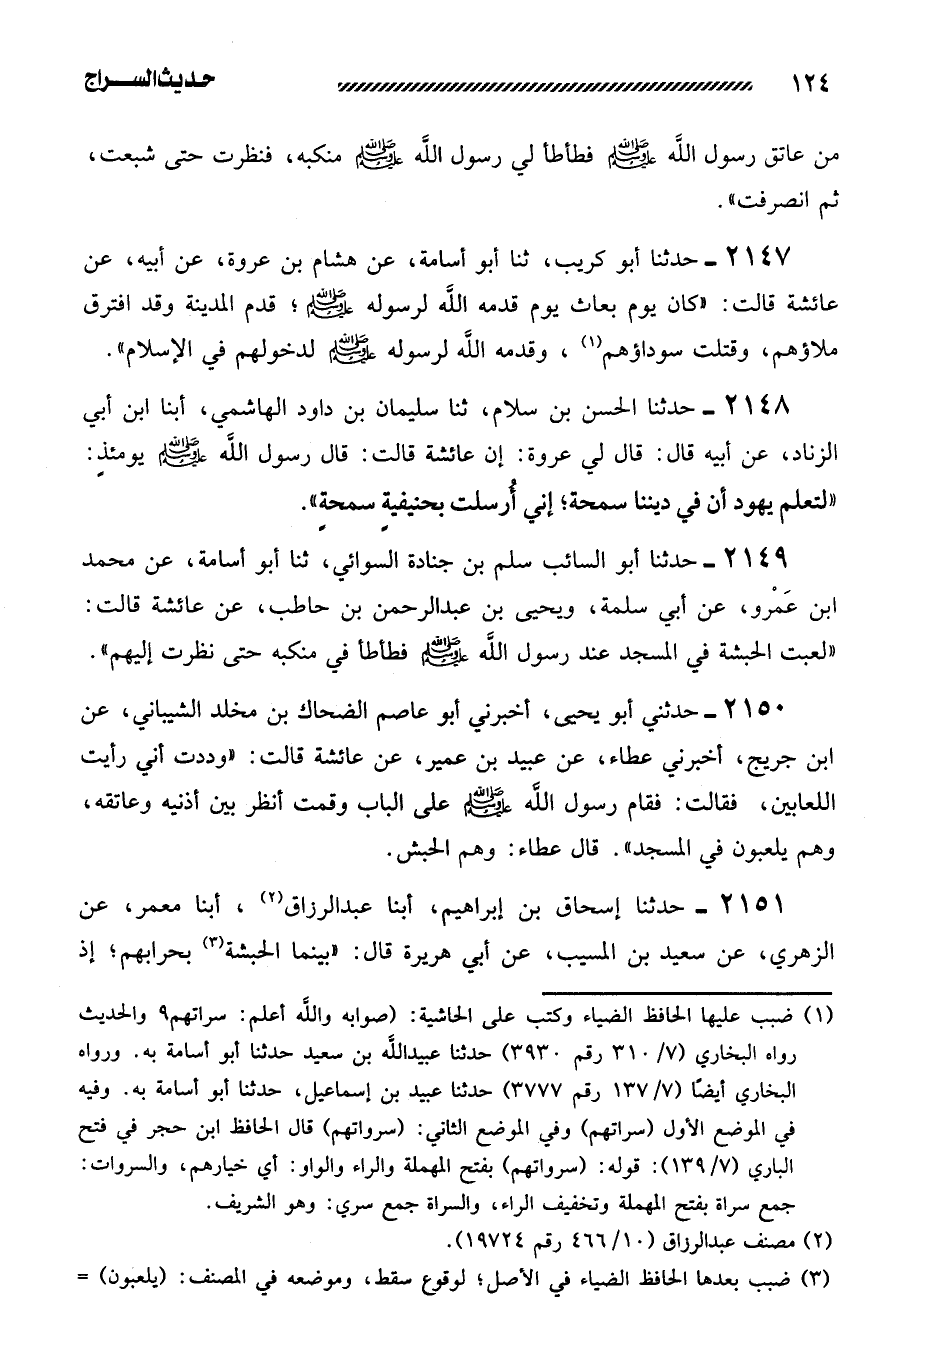 ١٢٤ حديث السراج
من عاتق رسول اللَّه ﷺ فطأطأ لي رسول اللَّه ﷺ منكبه، فنظرت حتى شبعت،
ثم انصرفت».
٢١٤٧ ـ حدثنا أبو كريب، ثنا أبو أسامة، عن هشام بن عروة، عن أبيه، عن
عائشة قالت: «كان يوم بعاث يوم قدمه اللَّه لرسوله ﷺ؛ قدم المدينة وقد افترق
ملاؤهم، وقتلت سوداؤهم(١)، وقدمه اللَّه لرسوله ﷺ لدخولهم في الإسلام».
٢١٤٨ ـ حدثنا الحسن بن سلام، ثنا سليمان بن داود الهاشمي، أبنا ابن أبي
الزناد، عن أبيه قال: قال لي عروة: إن عائشة قالت: قال رسول اللَّه ﷺ يومئذٍ:
«لتعلم يهود أن في ديننا سمحة؛ إني أُرسلت بحنيفيةٍ سمحةٍ».
٢١٤٩ ـ حدثنا أبو السائب سلم بن جنادة السوائي، ثنا أبو أسامة، عن محمد
ابن عَمْرو، عن أبي سلمة، ويحيى بن عبدالرحمن بن حاطب، عن عائشة قالت:
«لعبت الحبشة في المسجد عند رسول اللَّه ﷺ فطأطأ في منكبه حتى نظرت إليهم».
٢١٥٠ ـ حدثني أبو يحيى، أخبرني أبو عاصم الضحاك بن مخلد الشيباني، عن
ابن جريج، أخبرني عطاء، عن عبيد بن عمير، عن عائشة قالت: «وددت أني رأيت
اللعابين، فقالت: فقام رسول اللَّه ﷺ على الباب وقمت أنظر بين أذنيه وعاتقه،
وهم يلعبون في المسجد». قال عطاء: وهم الحبش.
٢١٥١ ـ حدثنا إسحاق بن إبراهيم، أبنا عبدالرزاق(٢)، أبنا معمر، عن
الزهري، عن سعيد بن المسيب، عن أبي هريرة قال: «بينما الحبشة(٣) بحرابهم؛ إذ
(١) ضبب عليها الحافظ الضياء وكتب على الحاشية: (صوابه واللَّه أعلم: سراتهم٩ والحديث
رواه البخاري (٧/ ٣١٠ رقم ٣٩٣٠) حدثنا عبيداللَّه بن سعيد حدثنا أبو أسامة به. ورواه
البخاري أيضًا (٧/ ١٣٧ رقم ٣٧٧٧) حدثنا عبيد بن إسماعيل، حدثنا أبو أسامة به. وفيه
في الموضع الأول (سراتهم) وفي الموضع الثاني: (سرواتهم) قال الحافظ ابن حجر في فتح
الباري (٧/ ١٣٩): قوله: (سرواتهم) بفتح المهملة والراء والواو: أي خيارهم، والسروات:
جمع سراة بفتح المهملة وتخفيف الراء، والسراة جمع سري: وهو الشريف.
(٢) مصنف عبدالرزاق (١٠/ ٤٦٦ رقم ١٩٧٢٤).
(٣) ضبب بعدها الحافظ الضياء في الأصل؛ لوقوع سقط، وموضعه في المصنف: (يلعبون) =